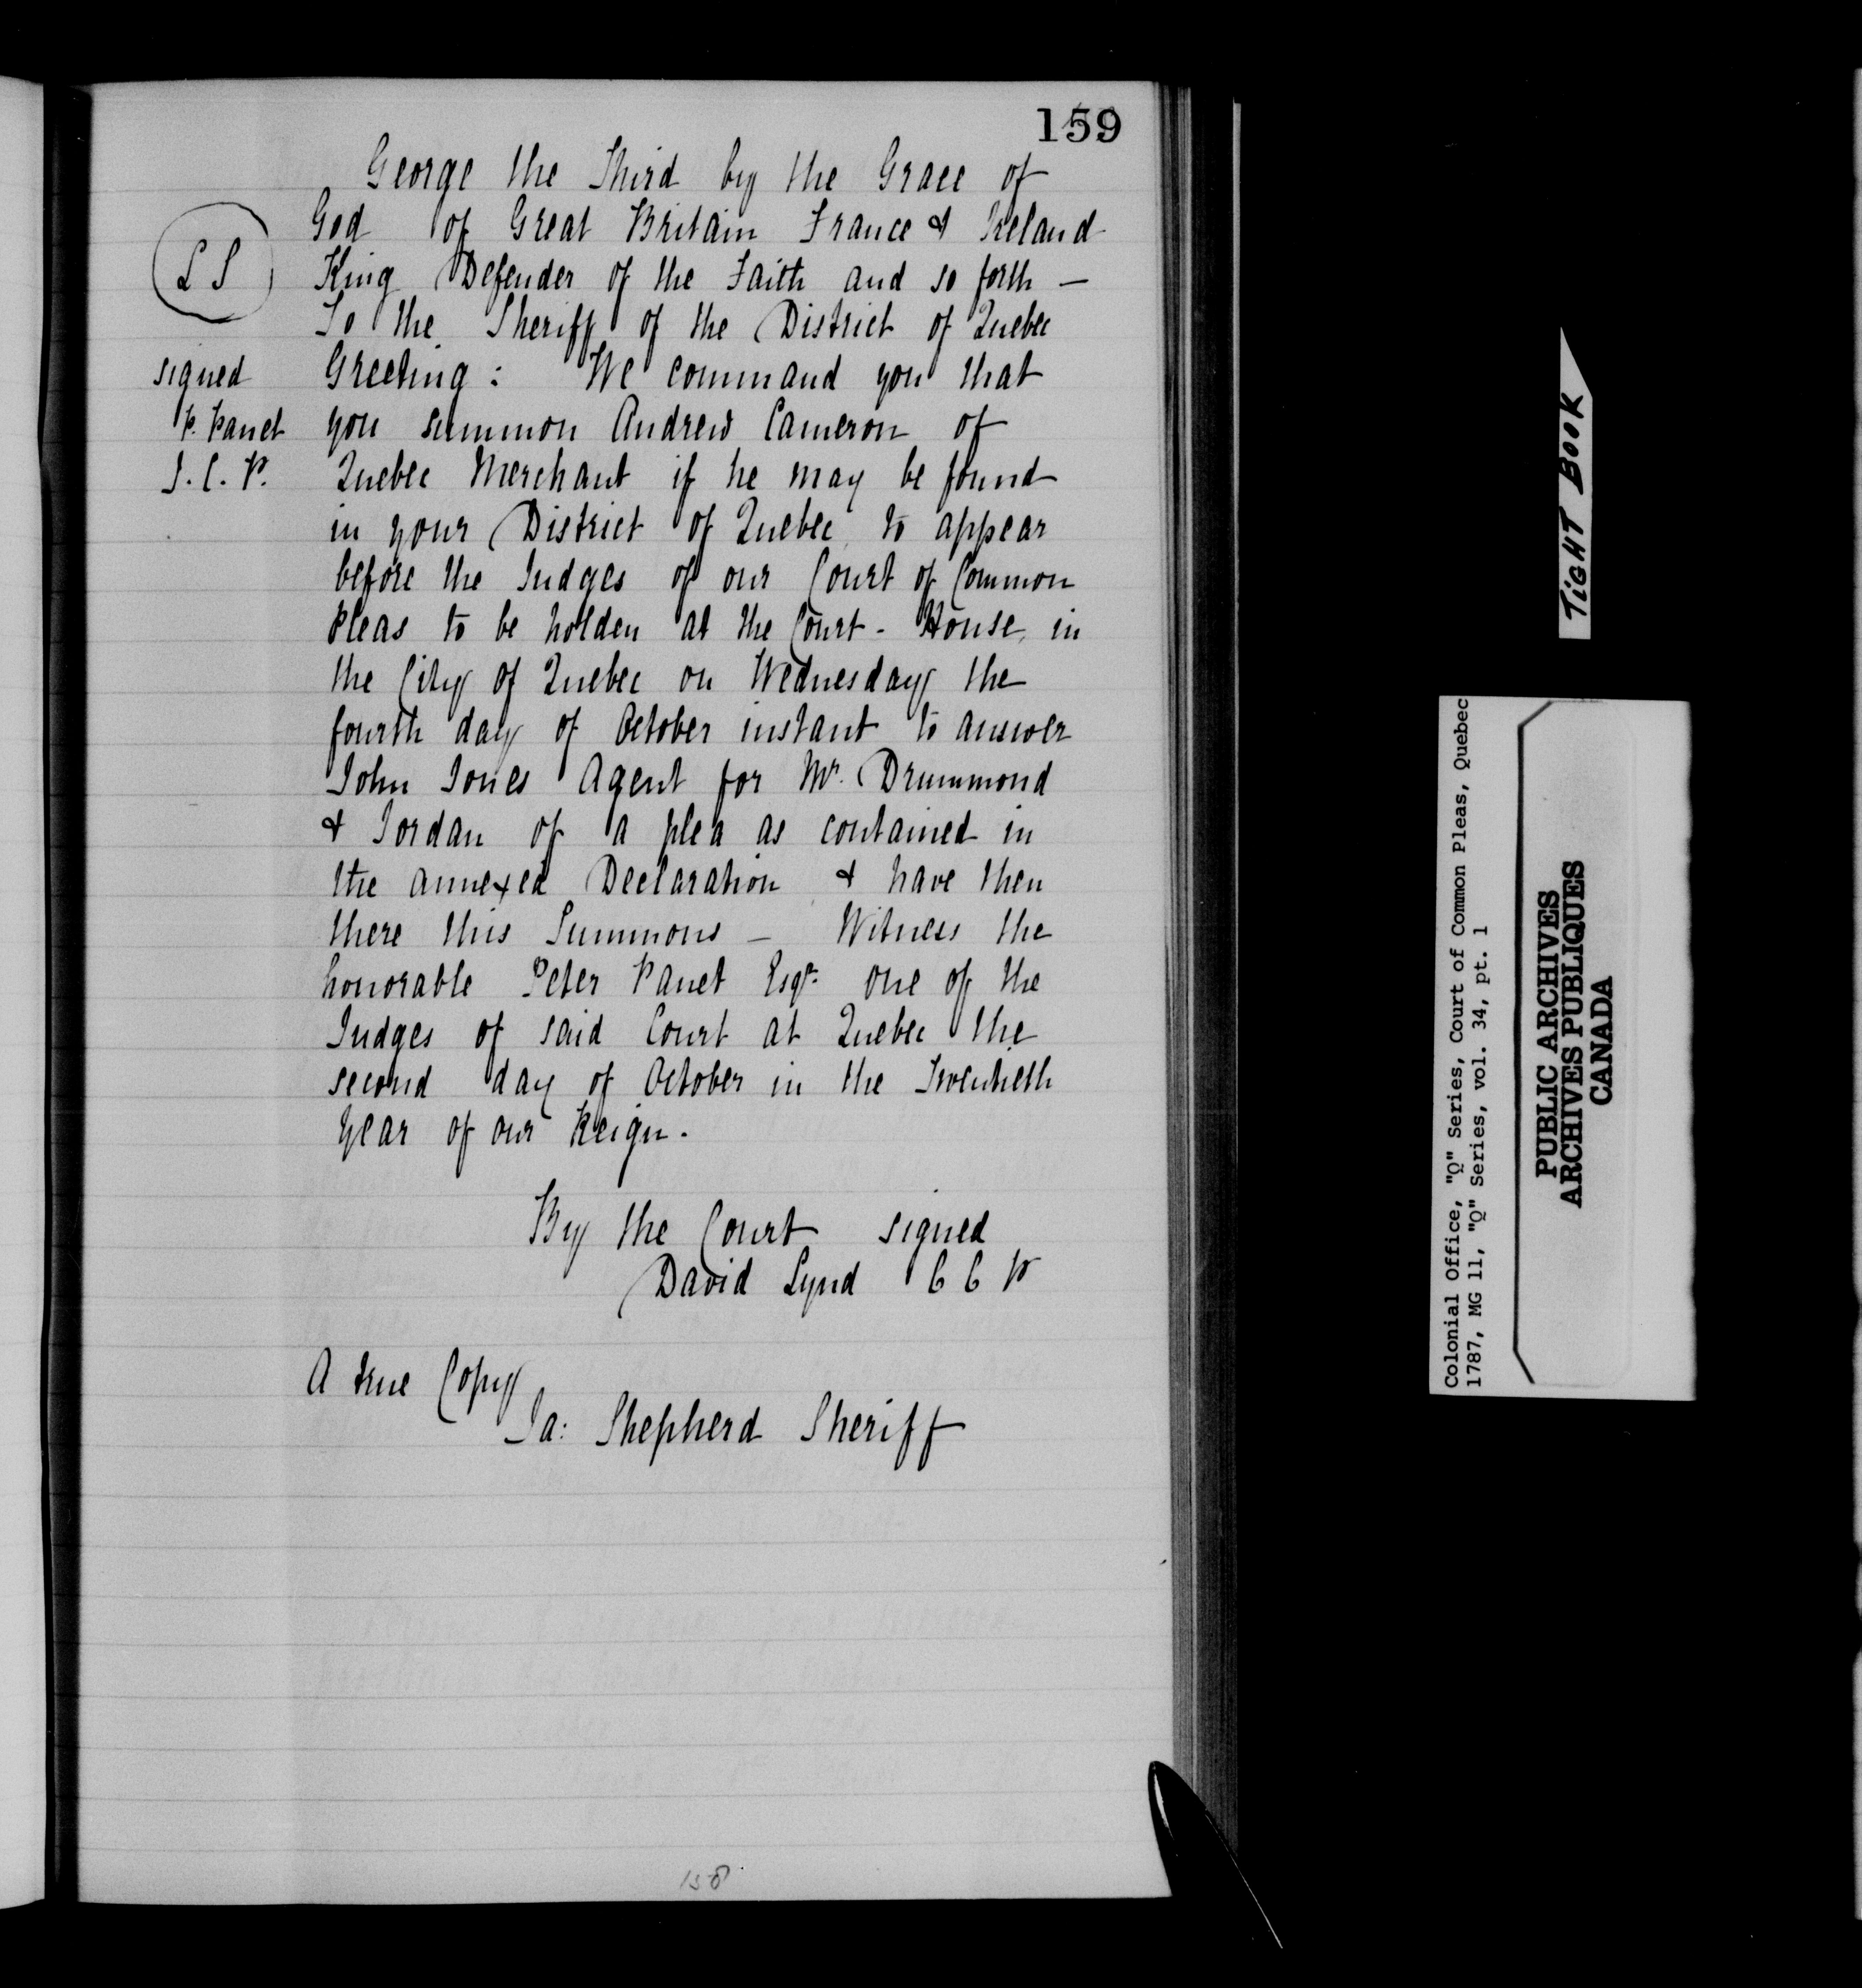 159
George the Third by the Grace of
God of Great Britain France & Ireland
L S
King Defender of the Faith and so forth —
To the Sheriff of the District of Quebec
signed
P. Panet
J. C. P.
Greeting: We command you that
you summon Andrew Cameron of
Quebec Merchant if he may be found
in your District of Quebec to appear
before the Judges of our Court of Common
Pleas to be holden at the Court-House in
the City of Quebec on Wednesday the
fourth day of October instant to answer
John Jones Agent for Mr. Drummond
& Jordan of a plea as contained in
the annexed Declaration & have then
there this Summons — Witness the
honorable Peter Panet Esqr. one of the
Judges of said Court at Quebec the
second day of October in the Twentieth
year of our Reign.
By the Court signed
David Lynd C C P
A true Copy
Ja: Shepherd Sheriff
158
TIGHT BOOK
Colonial Office, "Q" Series, Court of Common Pleas, Quebec
1787, MG 11, "Q" Series, vol. 34, pt. 1
PUBLIC ARCHIVES
ARCHIVES PUBLIQUES
CANADA